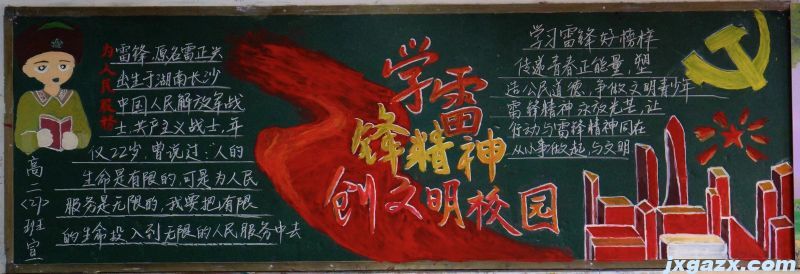 为人民服务
雷锋,原名雷正兴
出生于湖南长沙
中国人民解放军战
士,共产主义战士,年
仅22岁,曾说过:“人的
生命是有限的,可是为人民
服务是无限的,我要把有限
的生命投入到无限的人民服务中去
高二<2>班宣
学雷
锋精神
创文明校园
学习雷锋好榜样
传递青春正能量,塑
造公民道德,争做文明青少年
雷锋精神永放光芒,让
行动与雷锋精神同在
从小事做起,与文明
jxgazx.com